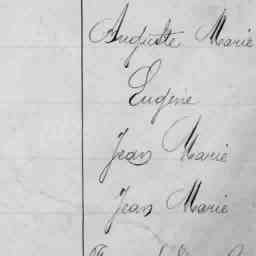 Auguste Marie
Eugène
Jean Marie
Jean Marie